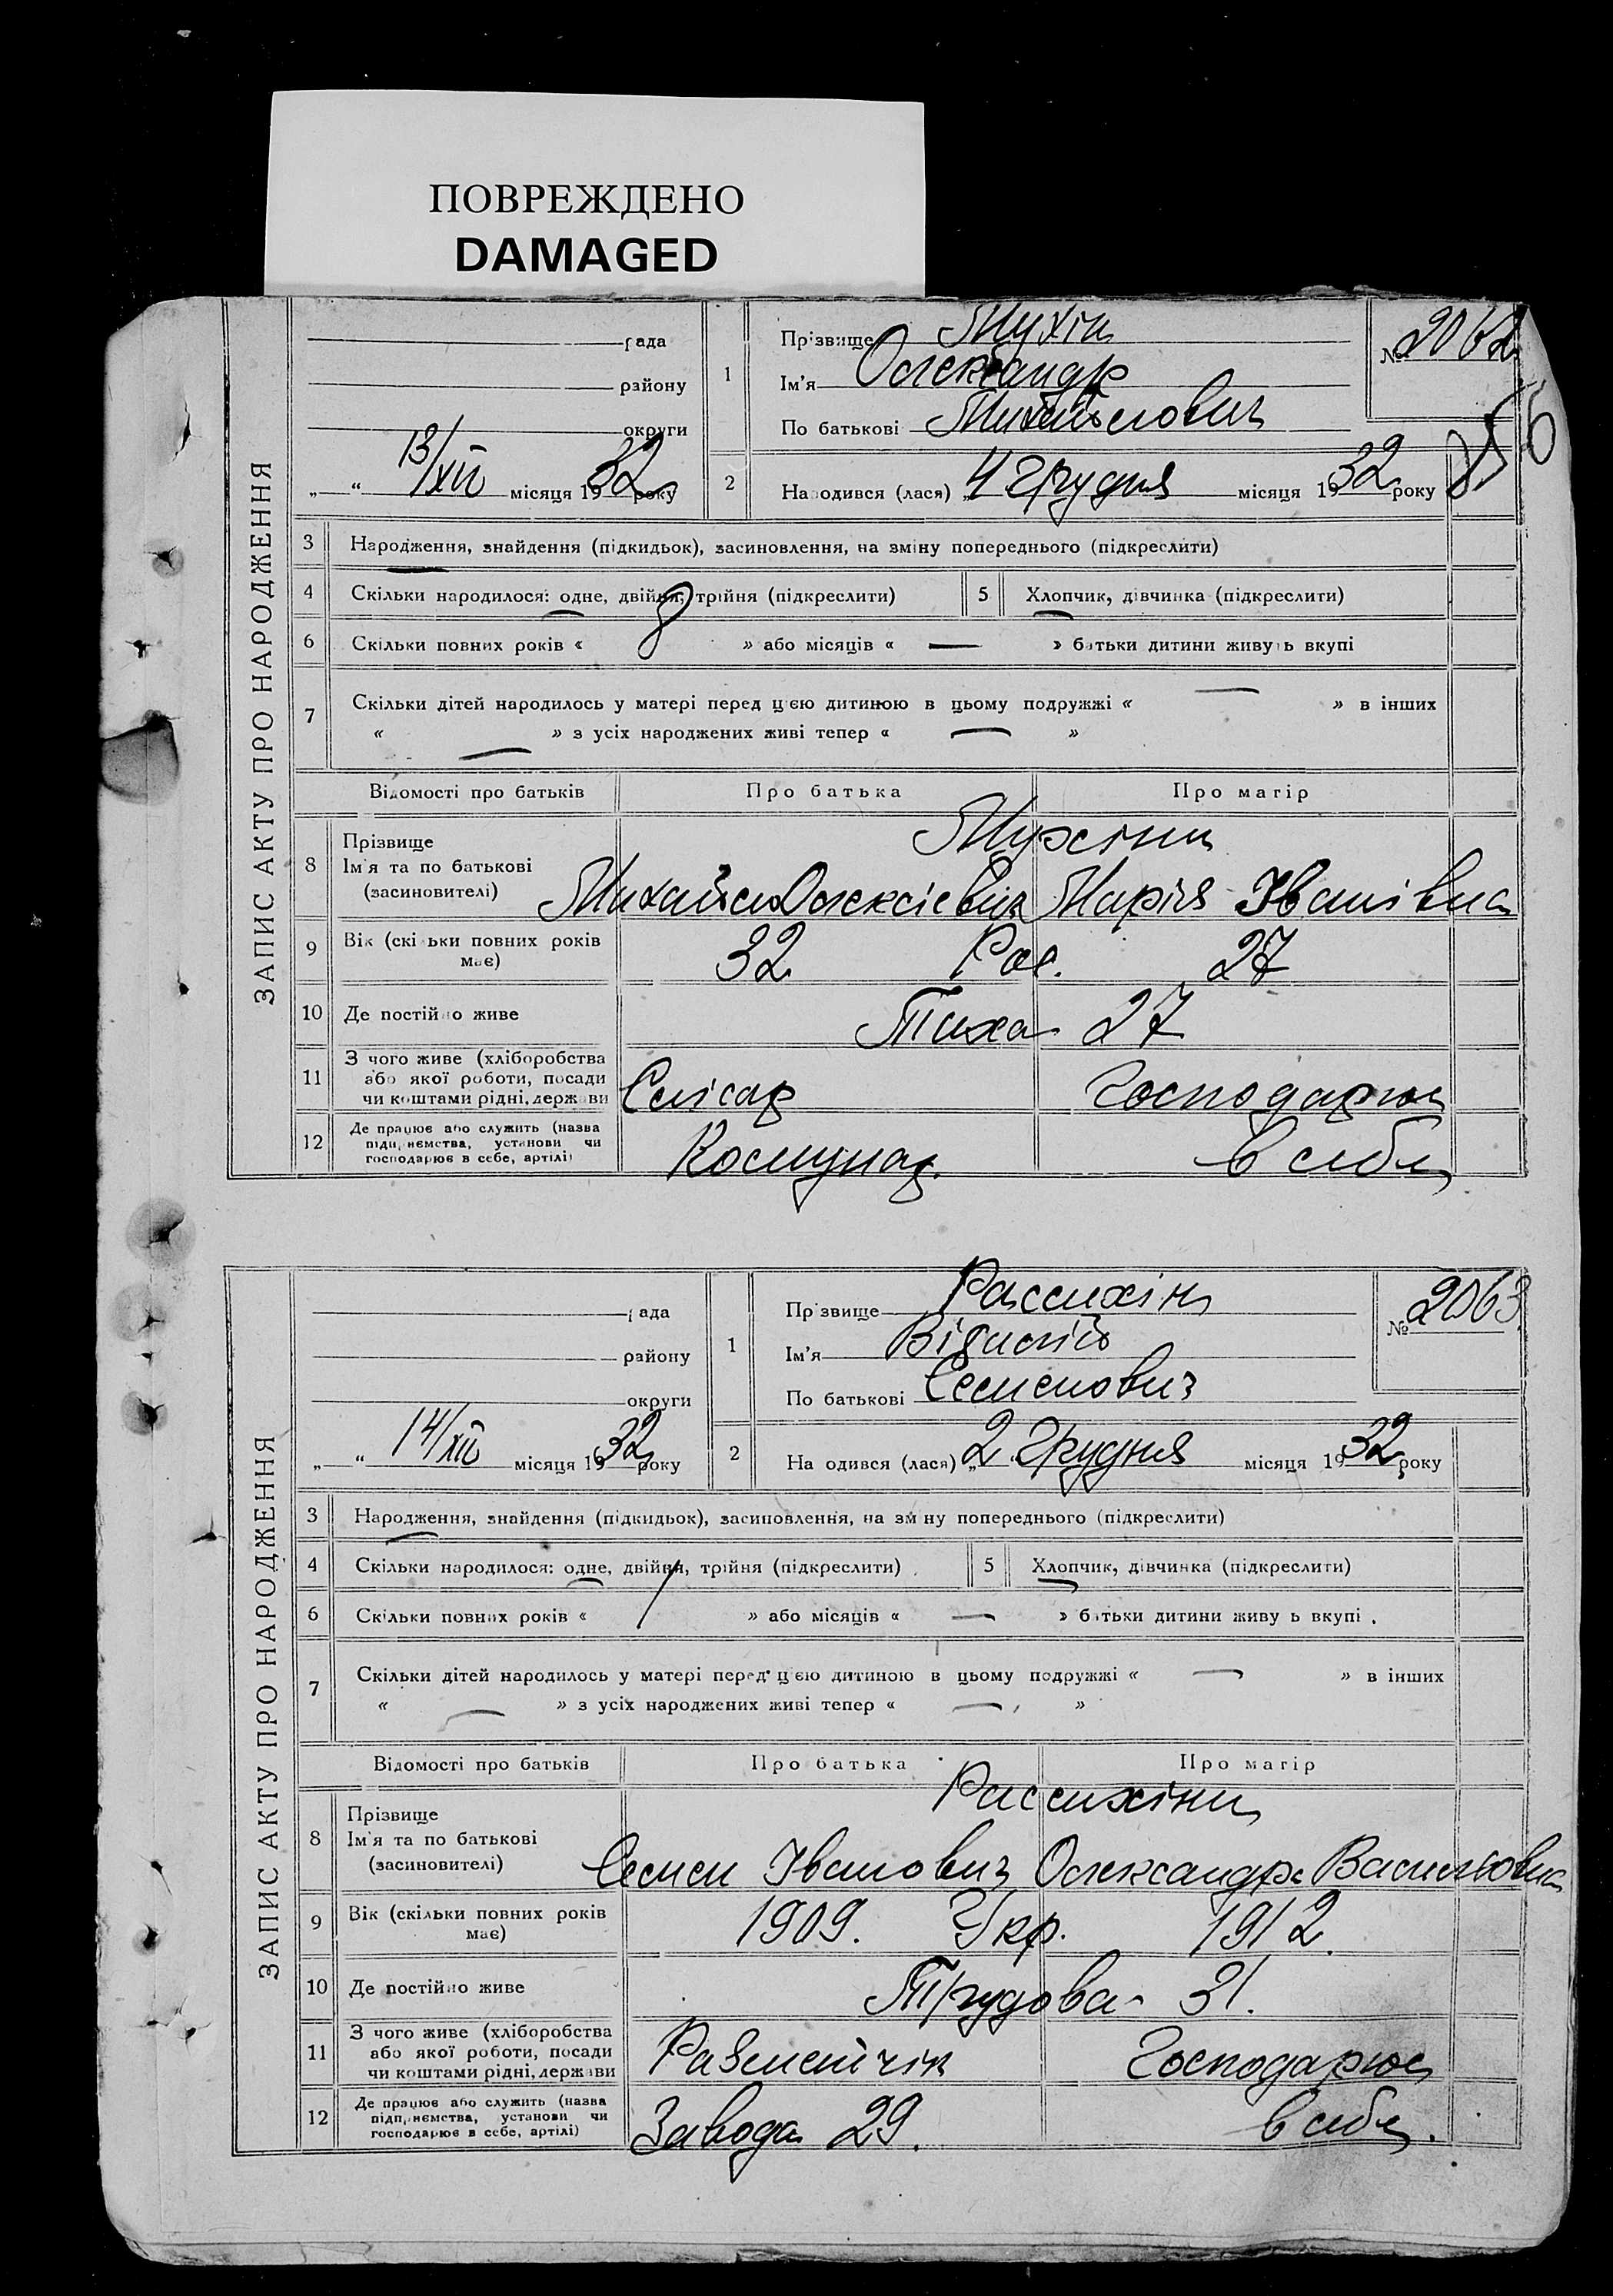 ПОВРЕЖДЕНО
DAMAGED
ЗАПИС АКТУ ПРО НАРОДЖЕННЯ
рада
району
округи
„ “ 13/XII місяця 1932 року
1
Прізвище Мухін
Ім'я Олександр
По батькові Михайлович
№ 2062
2
Народився (лася) „4 Грудня місяця 1932 року
3 Народження, знайдення (підкидьок), засиновлення, на зміну попереднього (підкреслити)
4 Скільки народилося: одне, двійня, трійня (підкреслити) 5 Хлопчик, дівчинка (підкреслити)
6 Скільки повних років « 8 » або місяців « — » батьки дитини живуть вкупі
7 Скільки дітей народилось у матері перед цією дитиною в цьому подружжі « — » в інших
« — » з усіх народжених живі тепер « — »
Відомості про батьків Про батька Про матір
8 Прізвище
Ім'я та по батькові
(засиновителі)
Мухіни
Михайло Олексієвич Марія Іванівна
9 Вік (скільки повних років має) 32 Рос. 27
10 Де постійно живе Тиха 27
11 З чого живе (хліборобства
або якої роботи, посади
чи коштами рідні, держави
Слісар Господарює
12 Де працює або служить (назва
підприємства, установи чи
господарює в себе, артілі)
Комунар. в себе
ЗАПИС АКТУ ПРО НАРОДЖЕННЯ
рада
району
округи
„ “ 14/XII місяця 1932 року
1
Прізвище Рассихін
Ім'я Віталій
По батькові Семенович
№ 2063
2
Народився (лася) „2“ Грудня місяця 1932 року
3 Народження, знайдення (підкидьок), засиновлення, на зміну попереднього (підкреслити)
4 Скільки народилося: одне, двійня, трійня (підкреслити) 5 Хлопчик, дівчинка (підкреслити)
6 Скільки повних років « 1 » або місяців « — » батьки дитини живуть вкупі
7 Скільки дітей народилось у матері перед цією дитиною в цьому подружжі « — » в інших
« — » з усіх народжених живі тепер « — »
Відомості про батьків Про батька Про матір
8 Прізвище
Ім'я та по батькові
(засиновителі)
Рассихіни
Семен Іванович Олександра Васильовна
9 Вік (скільки повних років має) 1909. Укр. 1912.
10 Де постійно живе Трудова - 31.
11 З чого живе (хліборобства
або якої роботи, посади
чи коштами рідні, держави
Разметчік Господарює
12 Де працює або служить (назва
підприємства, установи чи
господарює в себе, артілі)
Завода 29. в себе.